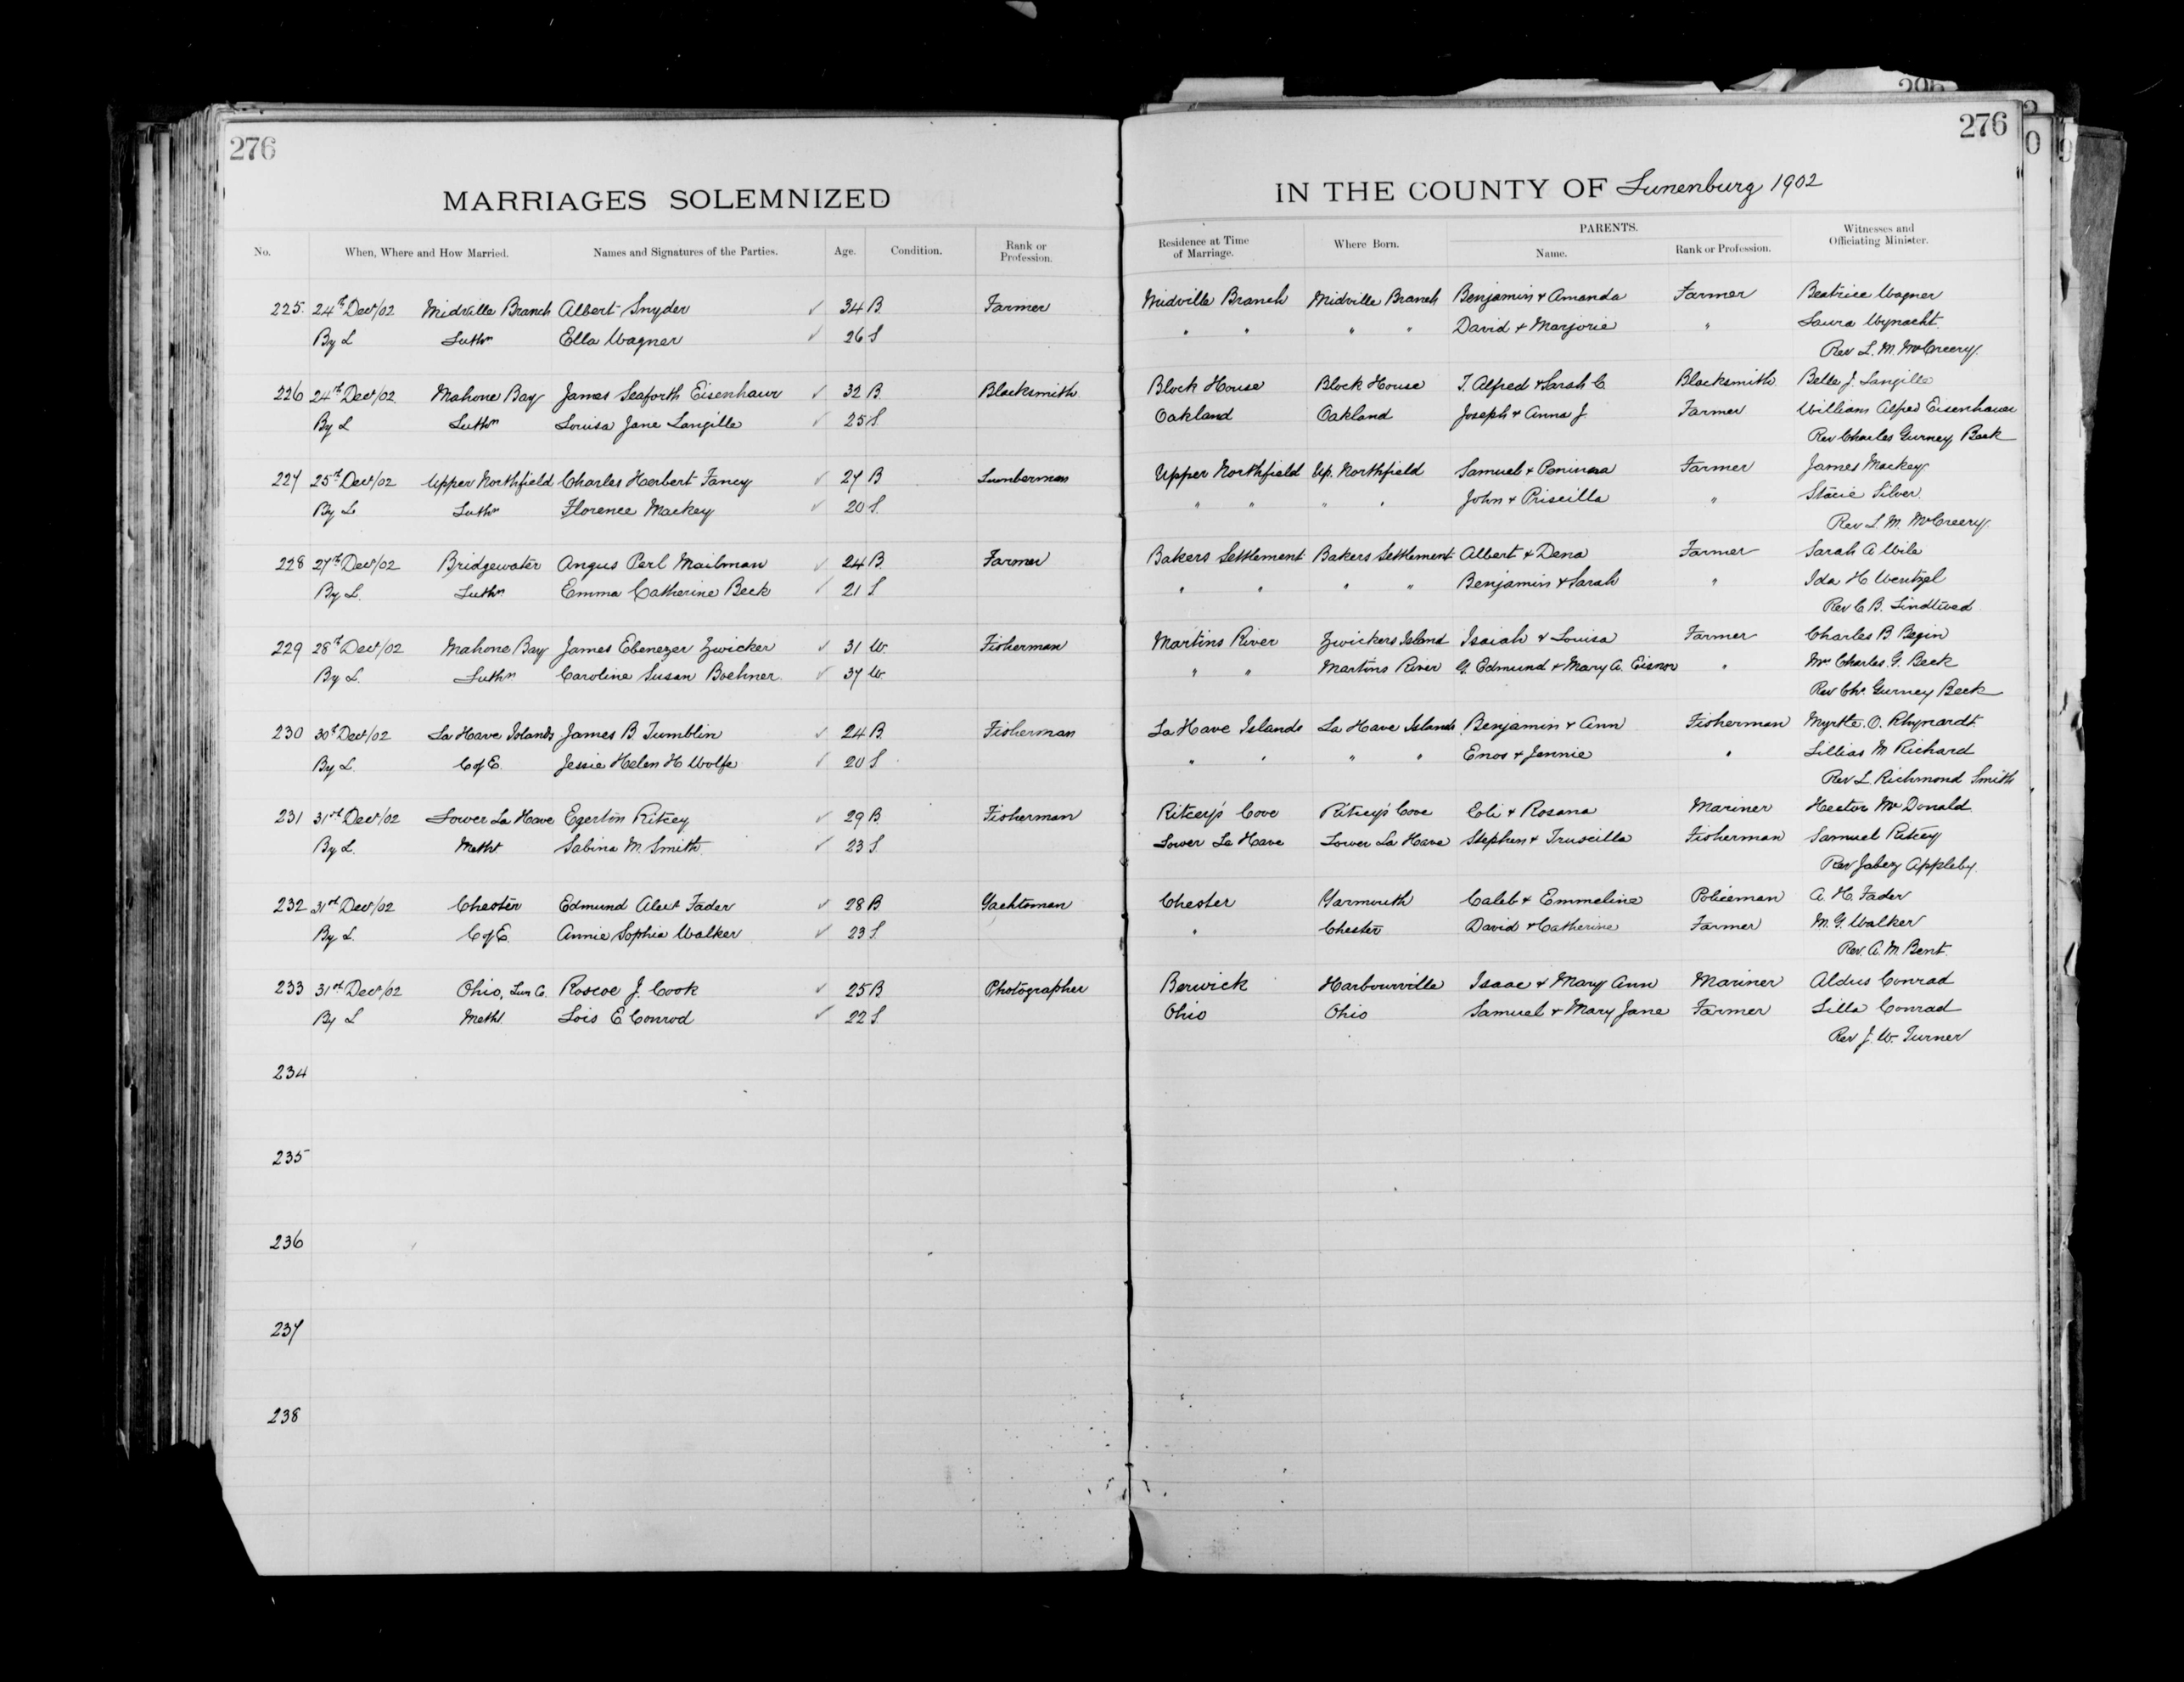 276
276
MARRIAGES SOLEMNIZED
IN THE COUNTY OF Lunenburg 1902
No. When, Where and How Married. Names and Signatures of the Parties. Age. Condition. Rank or Profession. Residence at Time of Marriage. Where Born. PARENTS. Name. Rank or Profession. Witnesses and Officiating Minister.
225. 24th Decr/02 Midville Branch Albert Snyder ✓ 34 B. Farmer Midville Branch Midville Branch Benjamin & Amanda Farmer Beatrice Wagner
By L Luthn Ella Wagner ✓ 26 S " " " " David & Marjorie " Laura Wynacht
Rev L. M. McCreery.
226 24th Decr/02. Mahone Bay James Seaforth Eisenhaur ✓ 32 B. Blacksmith Block House Block House T. Alfred & Sarah C Blacksmith Belle J. Langille
By L Luthn Louisa Jane Langille ✓ 25 S. Oakland Oakland Joseph & Anna J. Farmer William Alfred Eisenhauer
Rev Charles Gurney Beck
227 25th Decr/02 Upper Northfield Charles Herbert Fancy ✓ 27 B Lumberman Upper Northfield Up. Northfield Samuel & Farmer James Mackey
By L Luthn Florence Mackey ✓ 20 S. " " " " John & Priscilla " Stacie Silver.
Rev L. M. McCreery.
228 27th Decr/02 Bridgewater Angus Perl Mailman ✓ 24 B. Farmer Bakers Settlement Bakers Settlement Albert & Dena Farmer Sarah A Wile
By L. Luthn Emma Catherine Beck ✓ 21 S " " " " Benjamin & Sarah " Ida H Wentzel
Rev C. B. Lindtwed
229 28th Decr/02 Mahone Bay James Ebenezer Zwicker ✓ 31 W. Fisherman Martins River Zwickers Island Isaiah & Louisa Farmer Charles B Begin
By L. Luthn Caroline Susan Boehner. ✓ 37 W. " " Martins River G. Edmund & Mary A. Eisnor " Mrs Charles. G. Beck
Rev Chs. Gurney Beck
230 30th Decr/02 La Have Islands James B Tumblin ✓ 24 B. Fisherman La Have Islands La Have Islands Benjamin & Ann Fisherman Myrtle. O. Rhynardt
By L. C of E. Jessie Helen H Wolfe ✓ 20 S. " " " " Enos & Jennie " Lillias M Richard
Rev L. Richmond Smith
231 31st Decr/02 Lower La Have Egerton Ritcey ✓ 29 B Fisherman Ritcey's Cove Ritcey's Cove Eli & Rosana Mariner Hector McDonald
By L. Metht. Sabina M. Smith ✓ 23 S. Lower La Have Lower La Have Stephen & Truscilla Fisherman Samuel Ritcey
Rev Jabez Appleby.
232 31st Decr/02 Chester Edmund Alext Fader ✓ 28 B Yachtsman Chester Yarmouth Caleb & Emmeline Policeman A. H. Fader
By L. C of E. Annie Sophia Walker ✓ 23 S. " Chester David & Catherine Farmer M. G. Walker
Rev. A. M. Bent.
233 31st Decr/02 Ohio, Lun Co. Roscoe J. Cook ✓ 25 B. Photographer Berwick Harbourville Isaac & Mary Ann Mariner Aldus Conrad
By L Metht. Lois E Conrod ✓ 22 S. Ohio Ohio Samuel & Mary Jane Farmer Lilla Conrad
Rev J. W. Turner
234
235
236
237
238